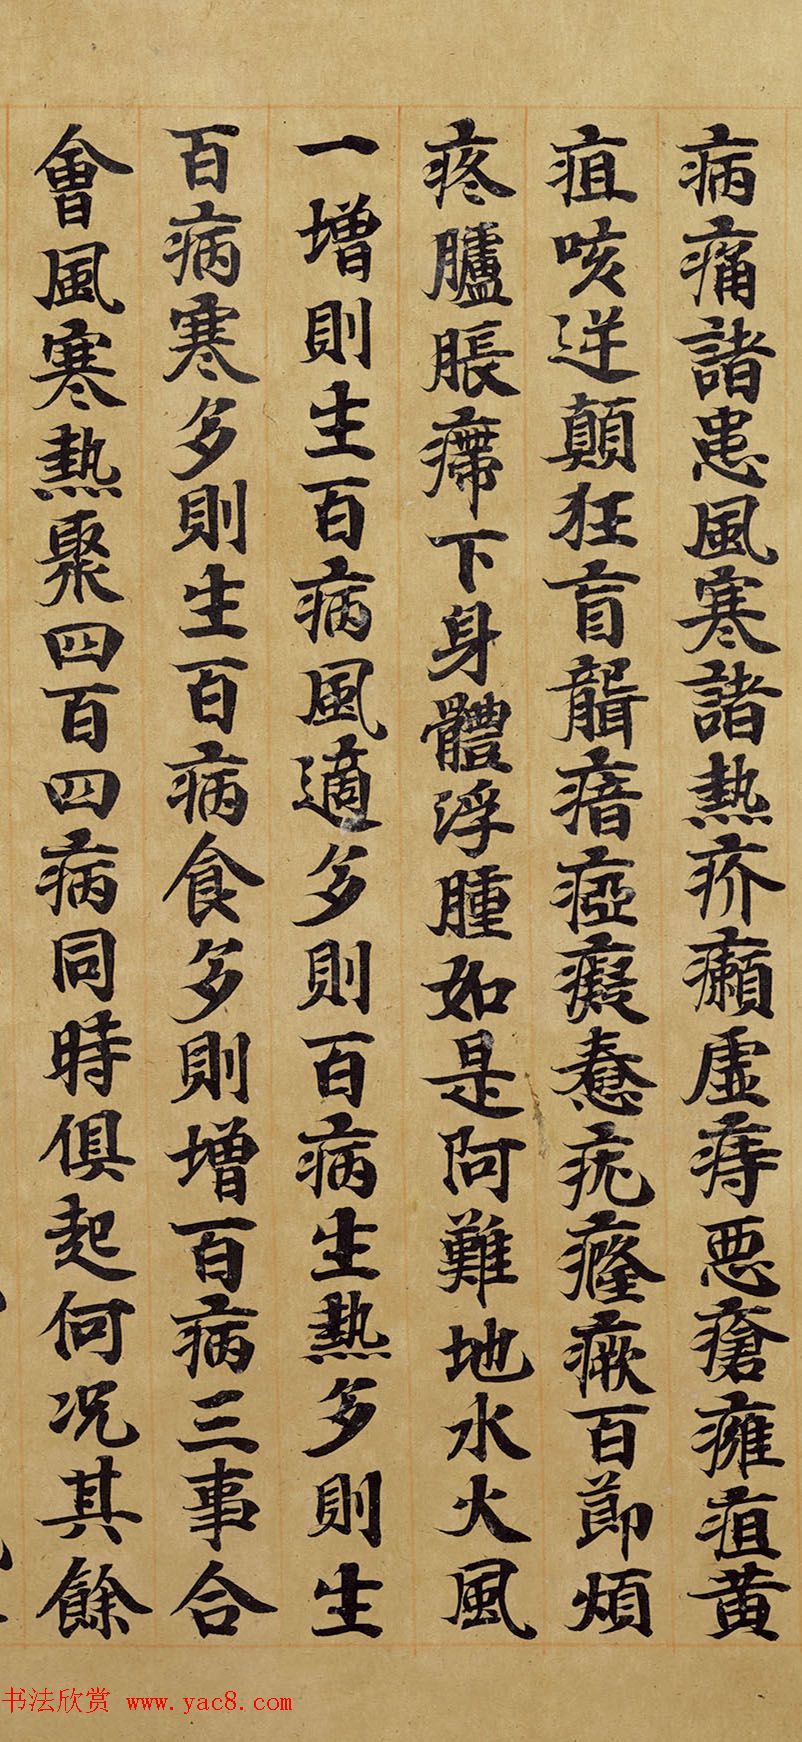 病痛諸患風寒諸熱疥癩虛痔惡瘡癰疽黃
疽咳逆顛狂盲聾瘖瘂癡意疣癃瘶百節煩
疼臚脹㿃下身體浮腫如是阿難地水火風
一增則生百病風適多則百病生熱多則生
百病寒多則生百病食多則增百病三事合
會風寒熱聚四百四病同時俱起何況其餘
书法欣赏 www.yac8.com